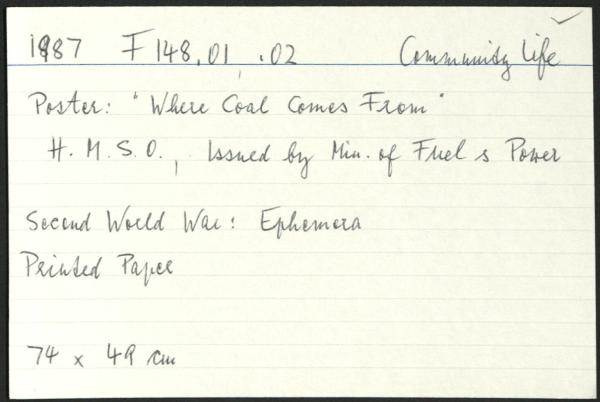 1987 F 148.01, .02 Community Life
Poster: "Where Coal Comes From"
H. M. S. O., Issued by Min. of Fuel & Power
Second World War: Ephemera
Printed Paper
74 x 49 cm